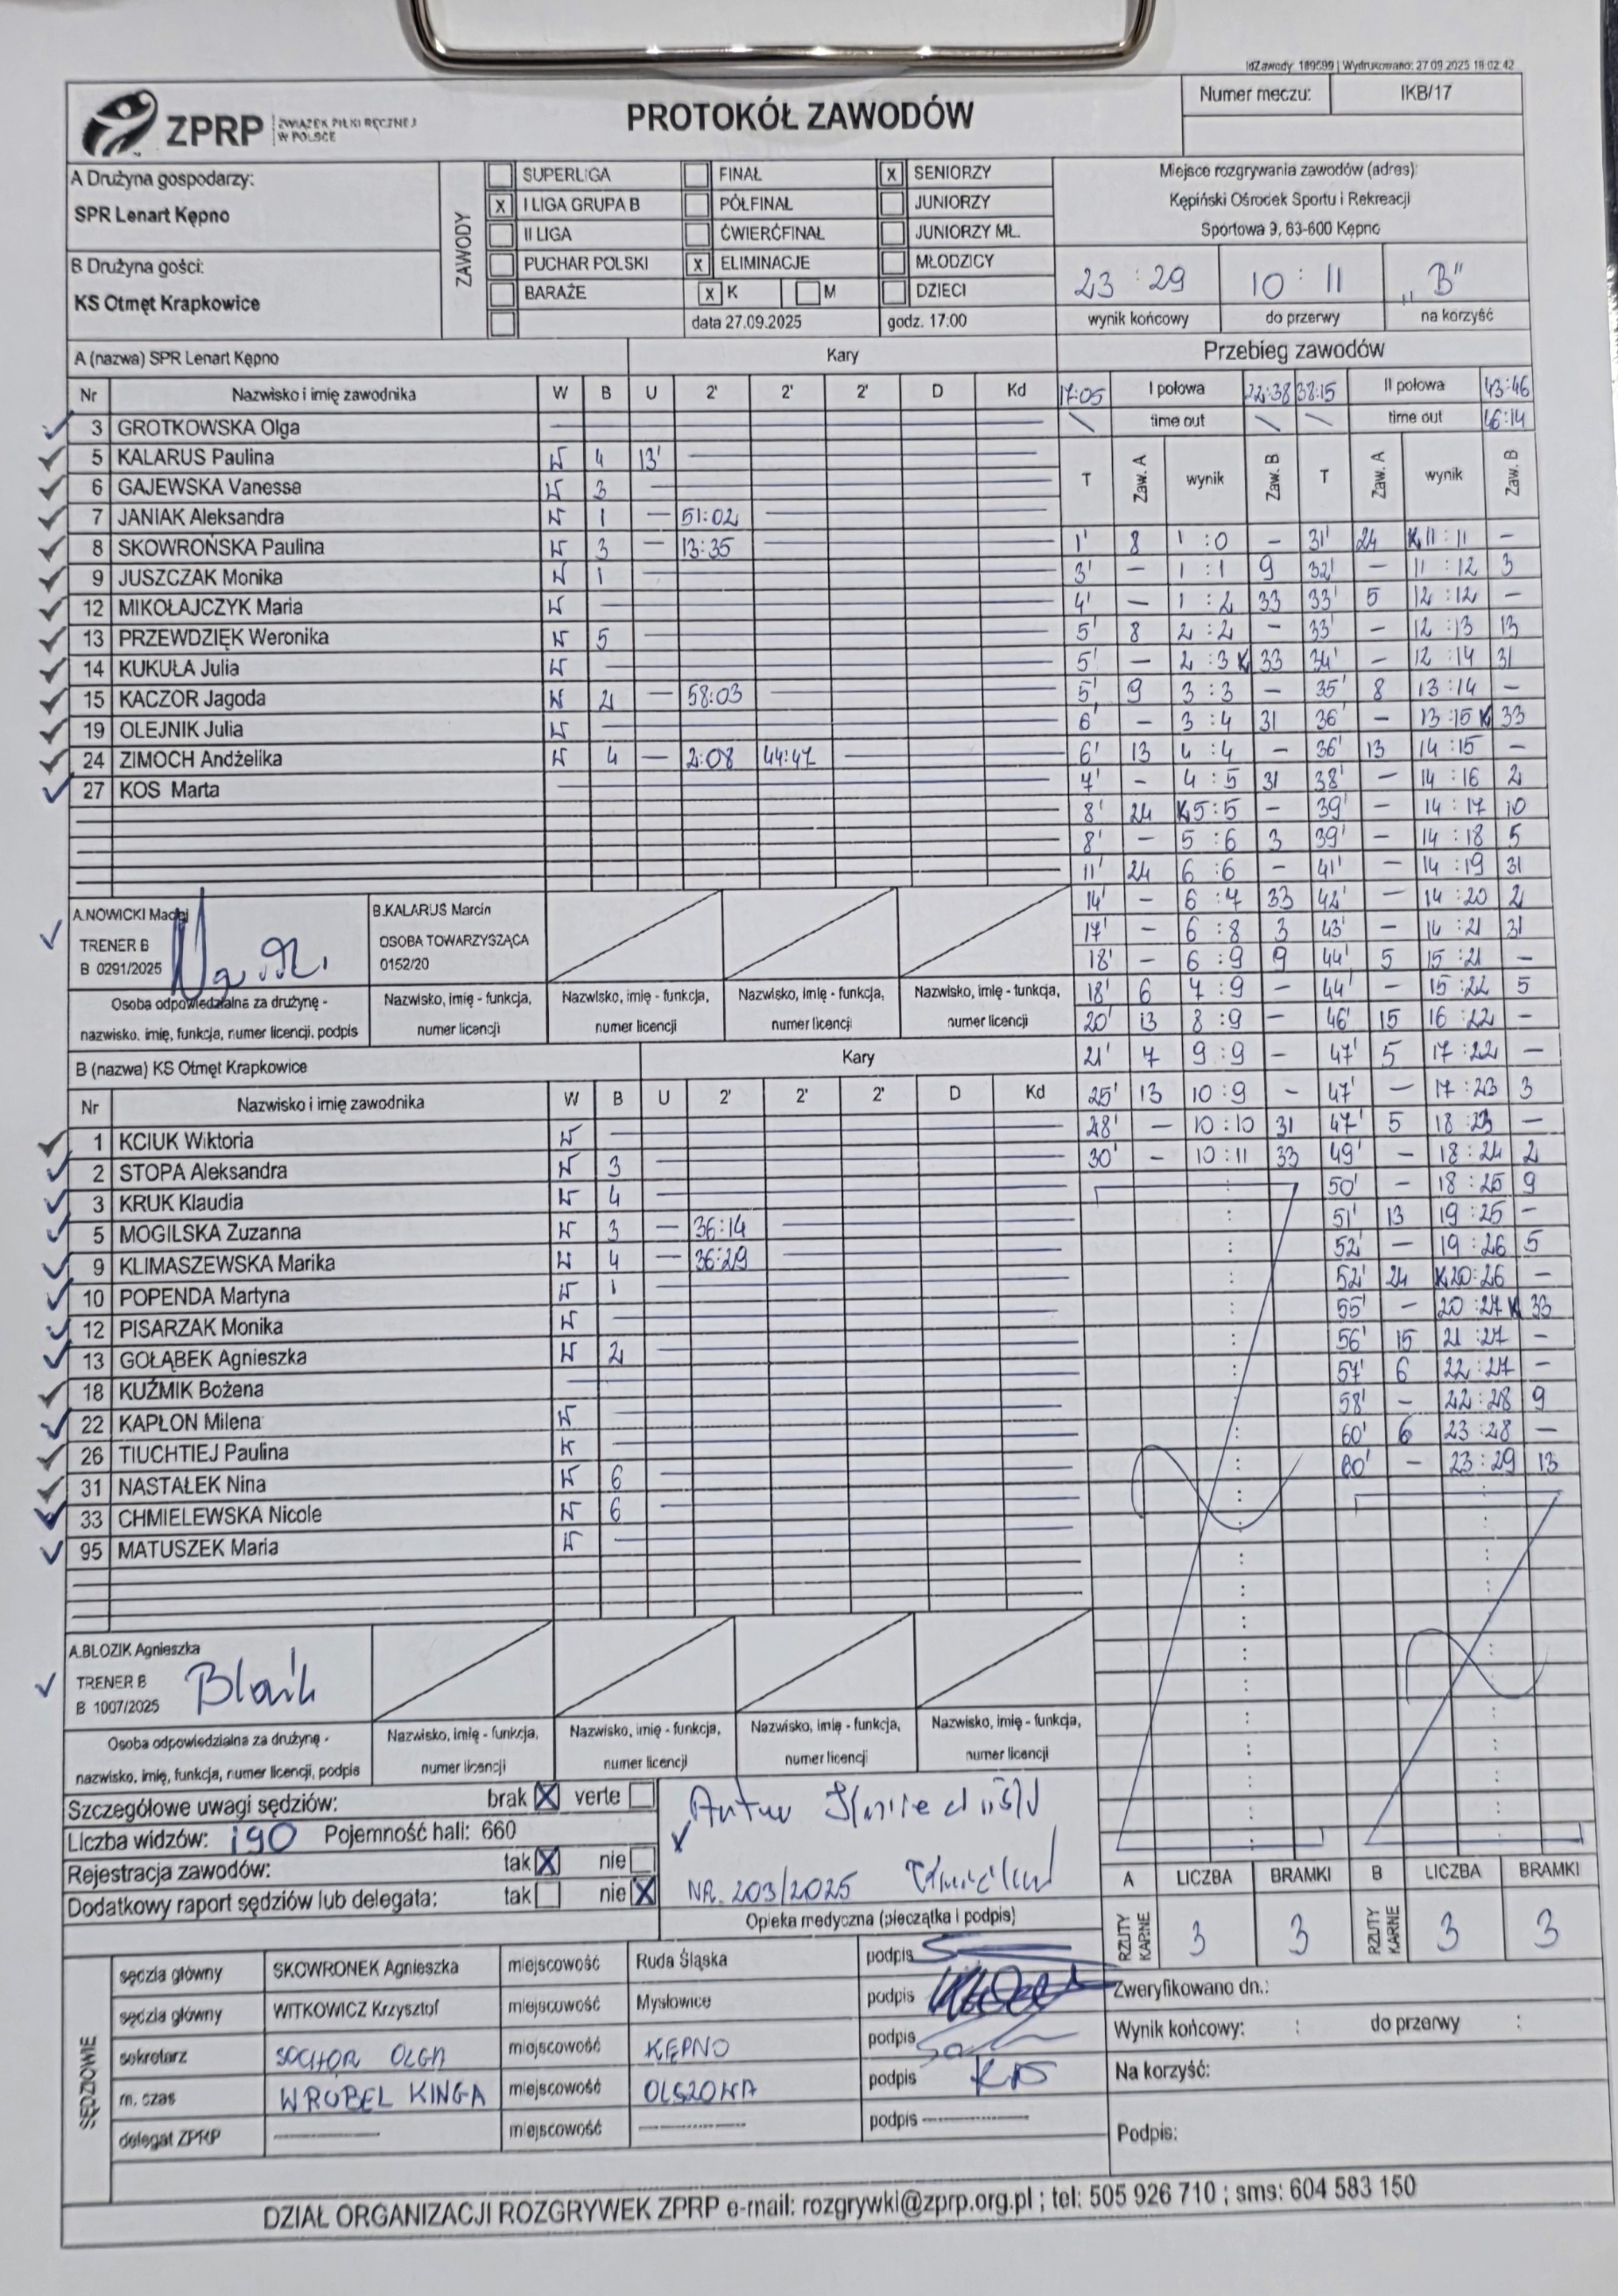 IdZawody: 189599 | Wydrukowano: 27.09.2025 18:02:42
ZPRP ZWIĄZEK PIŁKI RĘCZNEJ W POLSCE
PROTOKÓŁ ZAWODÓW
Numer meczu: IKB/17
A Drużyna gospodarzy:
SPR Lenart Kępno
B Drużyna gości:
KS Otmęt Krapkowice
ZAWODY
SUPERLIGA FINAŁ X SENIORZY
X I LIGA GRUPA B PÓŁFINAŁ JUNIORZY
II LIGA ĆWIERĆFINAŁ JUNIORZY MŁ.
PUCHAR POLSKI X ELIMINACJE MŁODZICY
BARAŻE X K M DZIECI
data 27.09.2025 godz. 17:00
Miejsce rozgrywania zawodów (adres):
Kępiński Ośrodek Sportu i Rekreacji
Sportowa 9, 63-600 Kępno
23 : 29 10 : 11 „B"
wynik końcowy do przerwy na korzyść
A (nazwa) SPR Lenart Kępno Kary
Nr Nazwisko i imię zawodnika W B U 2' 2' 2' D Kd
3 GROTKOWSKA Olga
5 KALARUS Paulina W 4 13'
6 GAJEWSKA Vanessa W 3
7 JANIAK Aleksandra W 1 — 51:02
8 SKOWROŃSKA Paulina W 3 — 13:35
9 JUSZCZAK Monika W 1
12 MIKOŁAJCZYK Maria W
13 PRZEWDZIĘK Weronika W 5
14 KUKUŁA Julia W
15 KACZOR Jagoda W 2 — 58:03
19 OLEJNIK Julia W
24 ZIMOCH Andżelika W 4 — 2:08 44:47
27 KOS Marta
A.NOWICKI Maciej
TRENER B
B 0291/2025
B.KALARUS Marcin
OSOBA TOWARZYSZĄCA
0152/20
Osoba odpowiedzialna za drużynę -
nazwisko, imię, funkcja, numer licencji, podpis
Nazwisko, imię - funkcja, Nazwisko, imię - funkcja, Nazwisko, imię - funkcja, Nazwisko, imię - funkcja,
numer licencji numer licencji numer licencji numer licencji
B (nazwa) KS Otmęt Krapkowice Kary
Nr Nazwisko i imię zawodnika W B U 2' 2' 2' D Kd
1 KCIUK Wiktoria W
2 STOPA Aleksandra W 3
3 KRUK Klaudia W 4
5 MOGILSKA Zuzanna W 3 — 36:14
9 KLIMASZEWSKA Marika W 4 — 36:29
10 POPENDA Martyna W 1
12 PISARZAK Monika W
13 GOŁĄBEK Agnieszka W 2
18 KUŹMIK Bożena
22 KAPŁON Milena W
26 TIUCHTIEJ Paulina W
31 NASTAŁEK Nina W 6
33 CHMIELEWSKA Nicole W 6
95 MATUSZEK Maria W
A.BLOZIK Agnieszka
TRENER B
B 1007/2025
Osoba odpowiedzialna za drużynę -
nazwisko, imię, funkcja, numer licencji, podpis
Nazwisko, imię - funkcja, Nazwisko, imię - funkcja, Nazwisko, imię - funkcja, Nazwisko, imię - funkcja,
numer licencji numer licencji numer licencji numer licencji
Przebieg zawodów
17:05 I połowa 22:38 38:15 II połowa 43:46
time out time out 46:14
T Zaw. A wynik Zaw. B T Zaw. A wynik Zaw. B
1' 8 1 : 0 - 31' 24 K 11 : 11 -
3' - 1 : 1 9 32' - 11 : 12 3
4' - 1 : 2 33 33' 5 12 : 12 -
5' 8 2 : 2 - 33' - 12 : 13 13
5' - 2 : 3 K 33 34' - 12 : 14 31
5' 9 3 : 3 - 35' 8 13 : 14 -
6' - 3 : 4 31 36' - 13 : 15 K 33
6' 13 4 : 4 - 36' 13 14 : 15 -
7' - 4 : 5 31 38' - 14 : 16 2
8' 24 K 5 : 5 - 39' - 14 : 17 10
8' - 5 : 6 3 39' - 14 : 18 5
11' 24 6 : 6 - 41' - 14 : 19 31
14' - 6 : 7 33 42' - 14 : 20 2
17' - 6 : 8 3 43' - 14 : 21 31
18' - 6 : 9 9 44' 5 15 : 21 -
18' 6 7 : 9 - 44' - 15 : 22 5
20' 13 8 : 9 - 46' 15 16 : 22 -
21' 7 9 : 9 - 47' 5 17 : 22 -
25' 13 10 : 9 - 47' - 17 : 23 3
28' - 10 : 10 31 47' 5 18 : 23 -
30' - 10 : 11 33 49' - 18 : 24 2
50' - 18 : 25 9
51' 13 19 : 25 -
52' - 19 : 26 5
52' 24 K 20 : 26 -
55' - 20 : 27 K 33
56' 15 21 : 27 -
57' 6 22 : 27 -
58' - 22 : 28 9
60' 6 23 : 28 -
60' - 23 : 29 13
Szczegółowe uwagi sędziów: brak X verte
Liczba widzów: 190 Pojemność hali: 660
Rejestracja zawodów: tak X nie
Dodatkowy raport sędziów lub delegata: tak nie X
Artur
NR. 203/2025
Opieka medyczna (pieczątka i podpis)
A LICZBA BRAMKI B LICZBA BRAMKI
RZUTY KARNE 3 3 RZUTY KARNE 3 3
SĘDZIOWIE
sędzia główny SKOWRONEK Agnieszka miejscowość Ruda Śląska podpis
sędzia główny WITKOWICZ Krzysztof miejscowość Mysłowice podpis
sekretarz SOCHOR OLGA miejscowość KĘPNO podpis
m. czas WRÓBEL KINGA miejscowość OLSZOWA podpis
delegat ZPRP miejscowość podpis
Zweryfikowano dn.:
Wynik końcowy: : do przerwy :
Na korzyść:
Podpis:
DZIAŁ ORGANIZACJI ROZGRYWEK ZPRP e-mail: rozgrywki@zprp.org.pl ; tel: 505 926 710 ; sms: 604 583 150